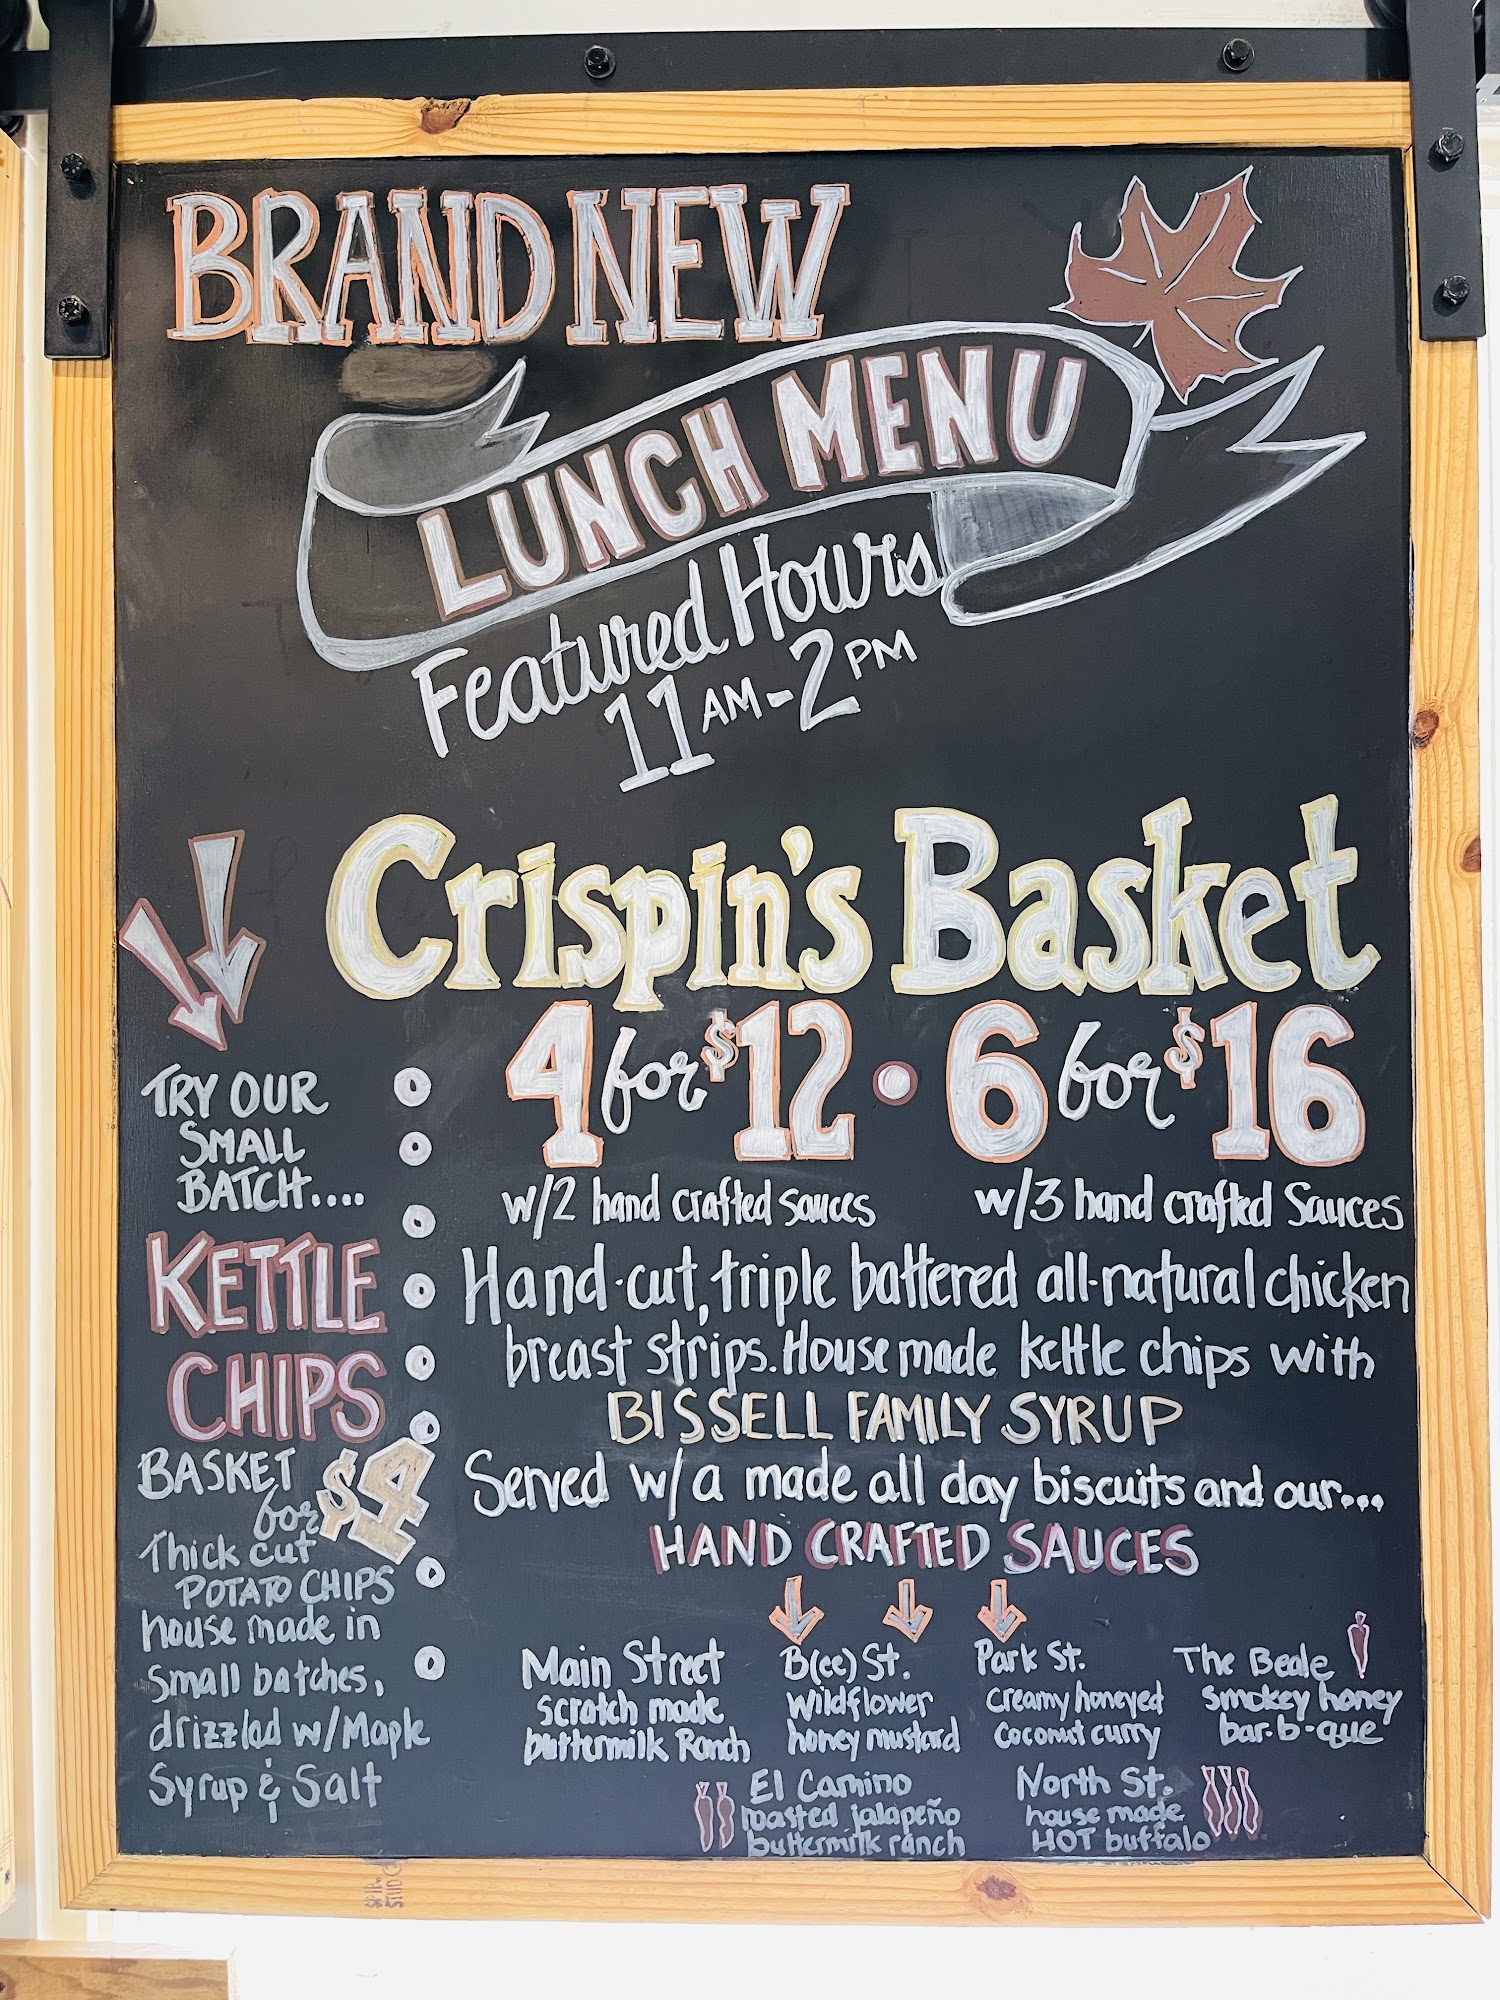 BRAND NEW
LUNCH MENU
Featured Hours
11 AM - 2 PM
Crispin's Basket
4 for $12 • 6 for $16
w/2 hand crafted sauces
w/3 hand crafted Sauces
Hand-cut, triple battered all-natural chicken
breast strips. House made kettle chips with
BISSELL FAMILY SYRUP
Served w/a made all day biscuits and our...
HAND CRAFTED SAUCES
Main Street
scratch made
buttermilk Ranch
B(ee) St.
wildflower
honey mustard
Park St.
Creamy honeyed
coconut curry
The Beale
smokey honey
bar-b-que
El Camino
roasted jalapeño
buttermilk ranch
North St.
house made
HOT buffalo
TRY OUR
SMALL
BATCH....
KETTLE
CHIPS
BASKET
for $4
Thick cut
POTATO CHIPS
house made in
small batches,
drizzled w/Maple
Syrup & Salt